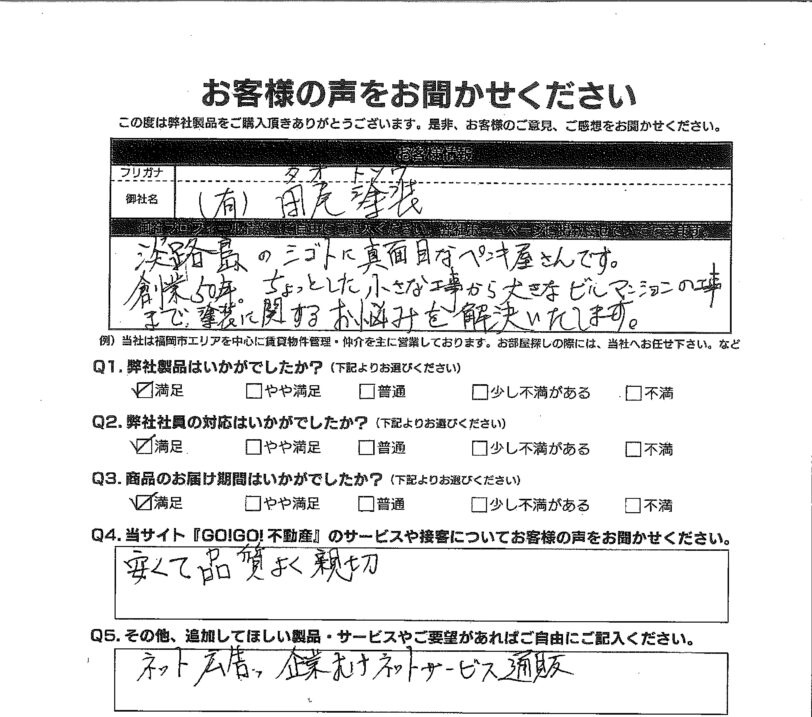 お客様の声をお聞かせください
この度は弊社製品をご購入頂きありがとうございます。是非、お客様のご意見、ご感想をお聞かせください。
お客様情報
フリガナ タオ トソウ
御社名 (有) 田尾塗装
淡路島のシゴトに真面目なペンキ屋さんです。
創業50年。ちょっとした小さな工事から大きなビルマンションの工事
まで、塗装に関するお悩みを解決いたします。
例）当社は福岡市エリアを中心に賃貸物件管理・仲介を主に営業しております。お部屋探しの際には、当社へお任せ下さい。など
Q1. 弊社製品はいかがでしたか？（下記よりお選びください）
☑満足 □やや満足 □普通 □少し不満がある □不満
Q2. 弊社社員の対応はいかがでしたか？（下記よりお選びください）
☑満足 □やや満足 □普通 □少し不満がある □不満
Q3. 商品のお届け期間はいかがでしたか？（下記よりお選びください）
☑満足 □やや満足 □普通 □少し不満がある □不満
Q4. 当サイト『GO!GO! 不動産』のサービスや接客についてお客様の声をお聞かせください。
安くて品質よく親切
Q5. その他、追加してほしい製品・サービスやご要望があればご自由にご記入ください。
ネット広告 企業むけネットサービス通販